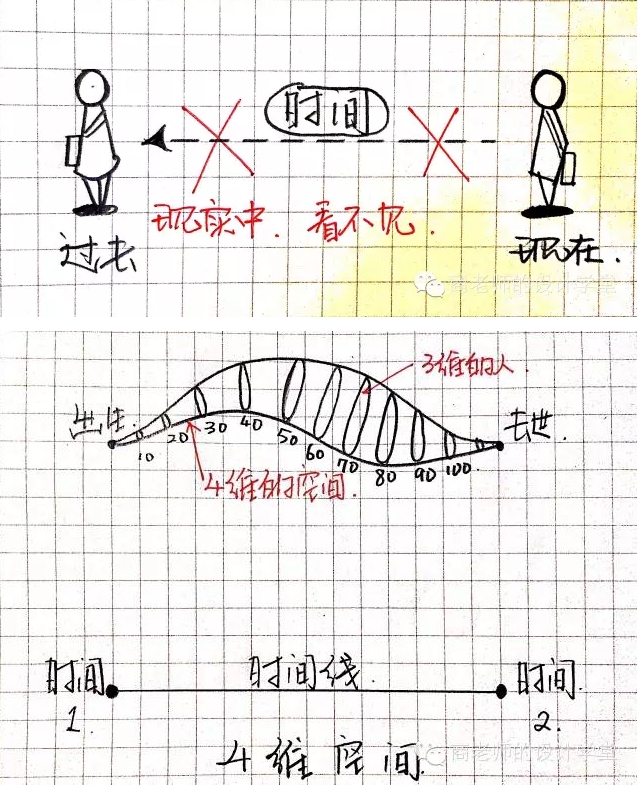 时间
现实中. 看不见.
过去
现在.
商老师的设计学堂
3维的人.
出生.
去世.
10 20 30 40 50 60 70 80 90 100
4维的空间.
时间 1.
时间线.
时间. 2.
4维空间.
商老师的设计学堂